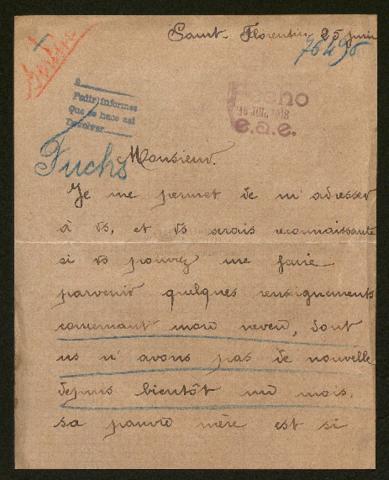 Saint-Florentin 25 juin
76496
Pedir informes
Que se hace asi
Devolver
Fuchs
Monsieur.
Je me permet de m'adresser
à Vs, et Vs serais reconnaissante
si Vs pouvez me faire
parvenir quelques renseignements
concernant mon neveu, dont
ns n'avons pas de nouvelle
depuis bientôt un mois.
sa pauvre mère est si